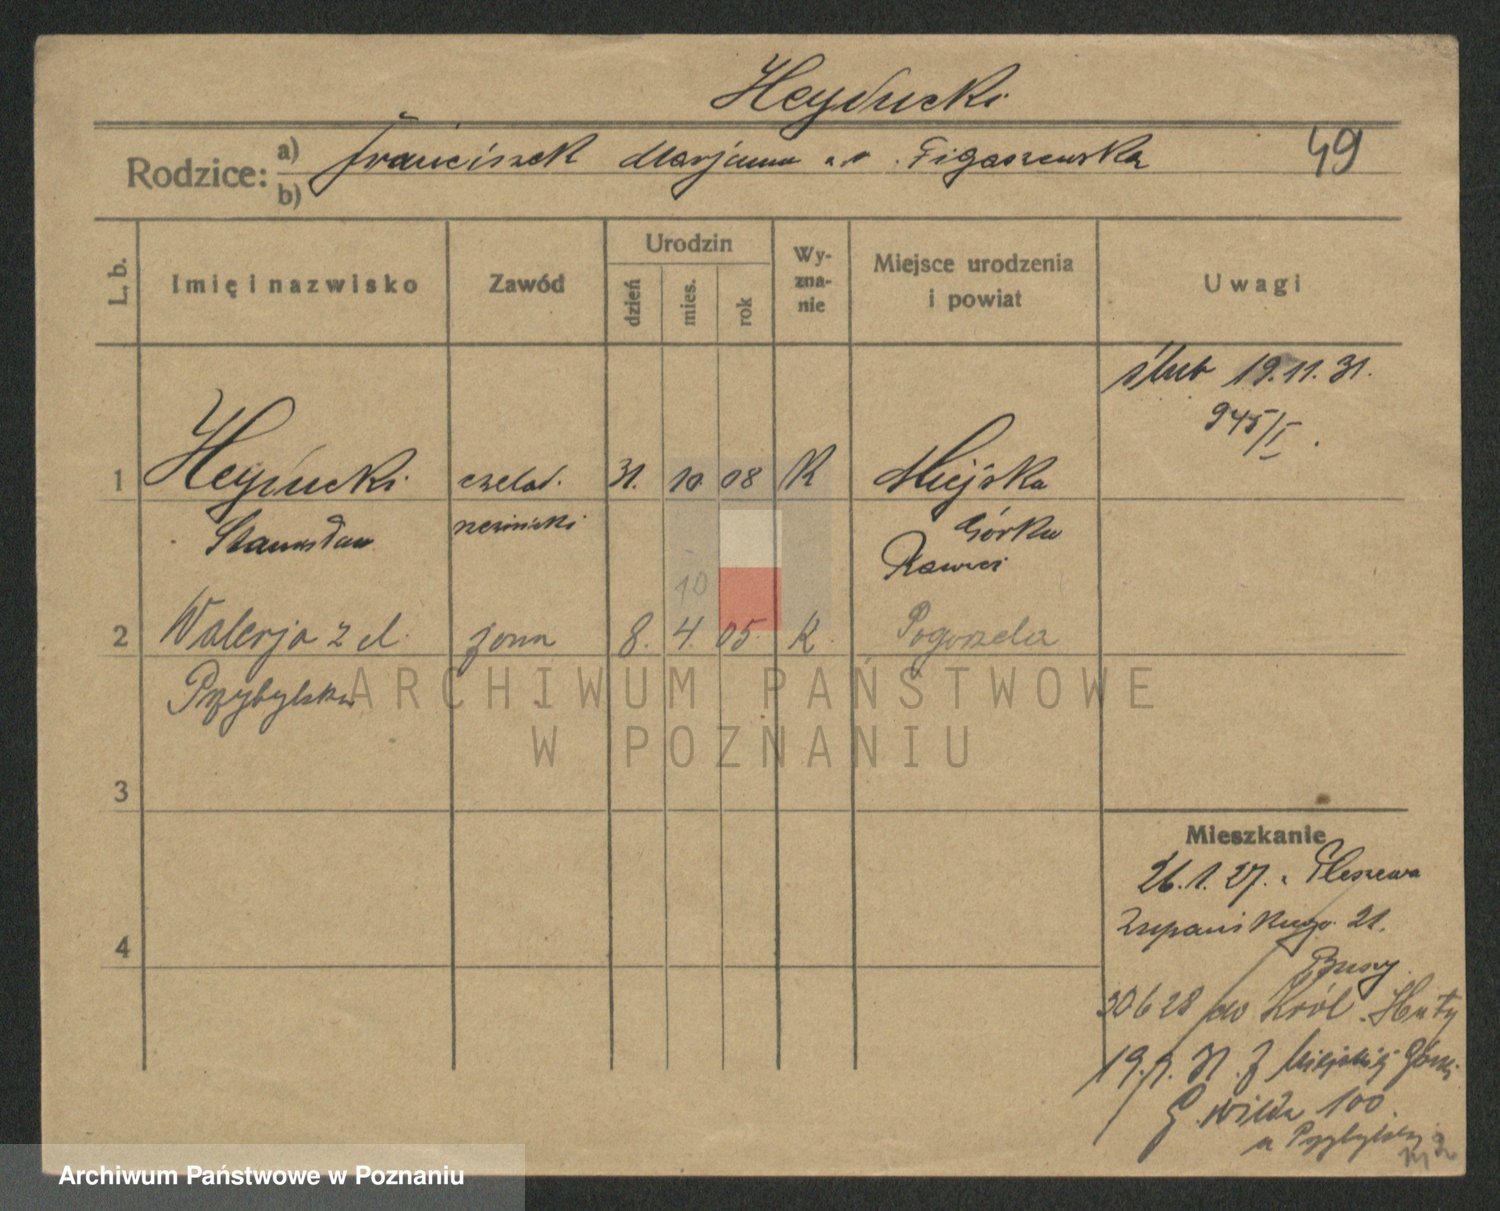 Heyducki
Rodzice: a) b) Franciszek Marjanna Figaszewska
49
L. b.
Imię i nazwisko
Zawód
Urodzin
dzień
mies.
rok
Wy-
zna-
nie
Miejsce urodzenia
i powiat
Uwagi
ślub 19.11.31.
945/I.
1 Heyducki czelad. 31. 10. 08 K Miejska
Stanisław rzeźnicki Górka
Rawicz
10
2 Walerja z d. żona 8. 4. 05. K Pogorzela
Przybylska
ARCHIWUM PAŃSTWOWE
W POZNANIU
3
4
Mieszkanie
26.1.27. z Pleszewa
Żupańskiego 21.
30 6 28 do Król. Huty
19.9.31. z Miejskiej Górki
G. Wilda 100.
u Przybylskiej
Archiwum Państwowe w Poznaniu